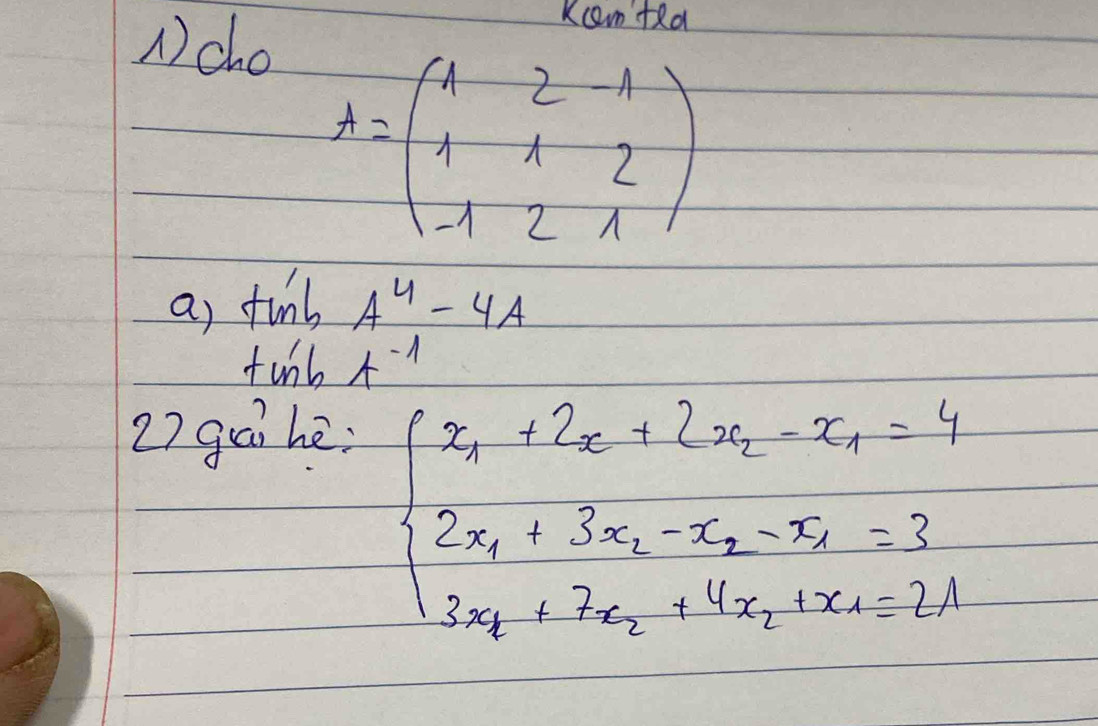 Kiểm tra
1) cho
A = \begin{pmatrix} 1 & 2 & -1 \\ 1 & 1 & 2 \\ -1 & 2 & 1 \end{pmatrix}
a) tính A⁴ - 4A
tính A⁻¹
2) giải hệ: { x₁ + 2x + 2x₂ - x₁ = 4
2x₁ + 3x₂ - x₂ - x₁ = 3
3x₁ + 7x₂ + 4x₂ + x₁ = 21